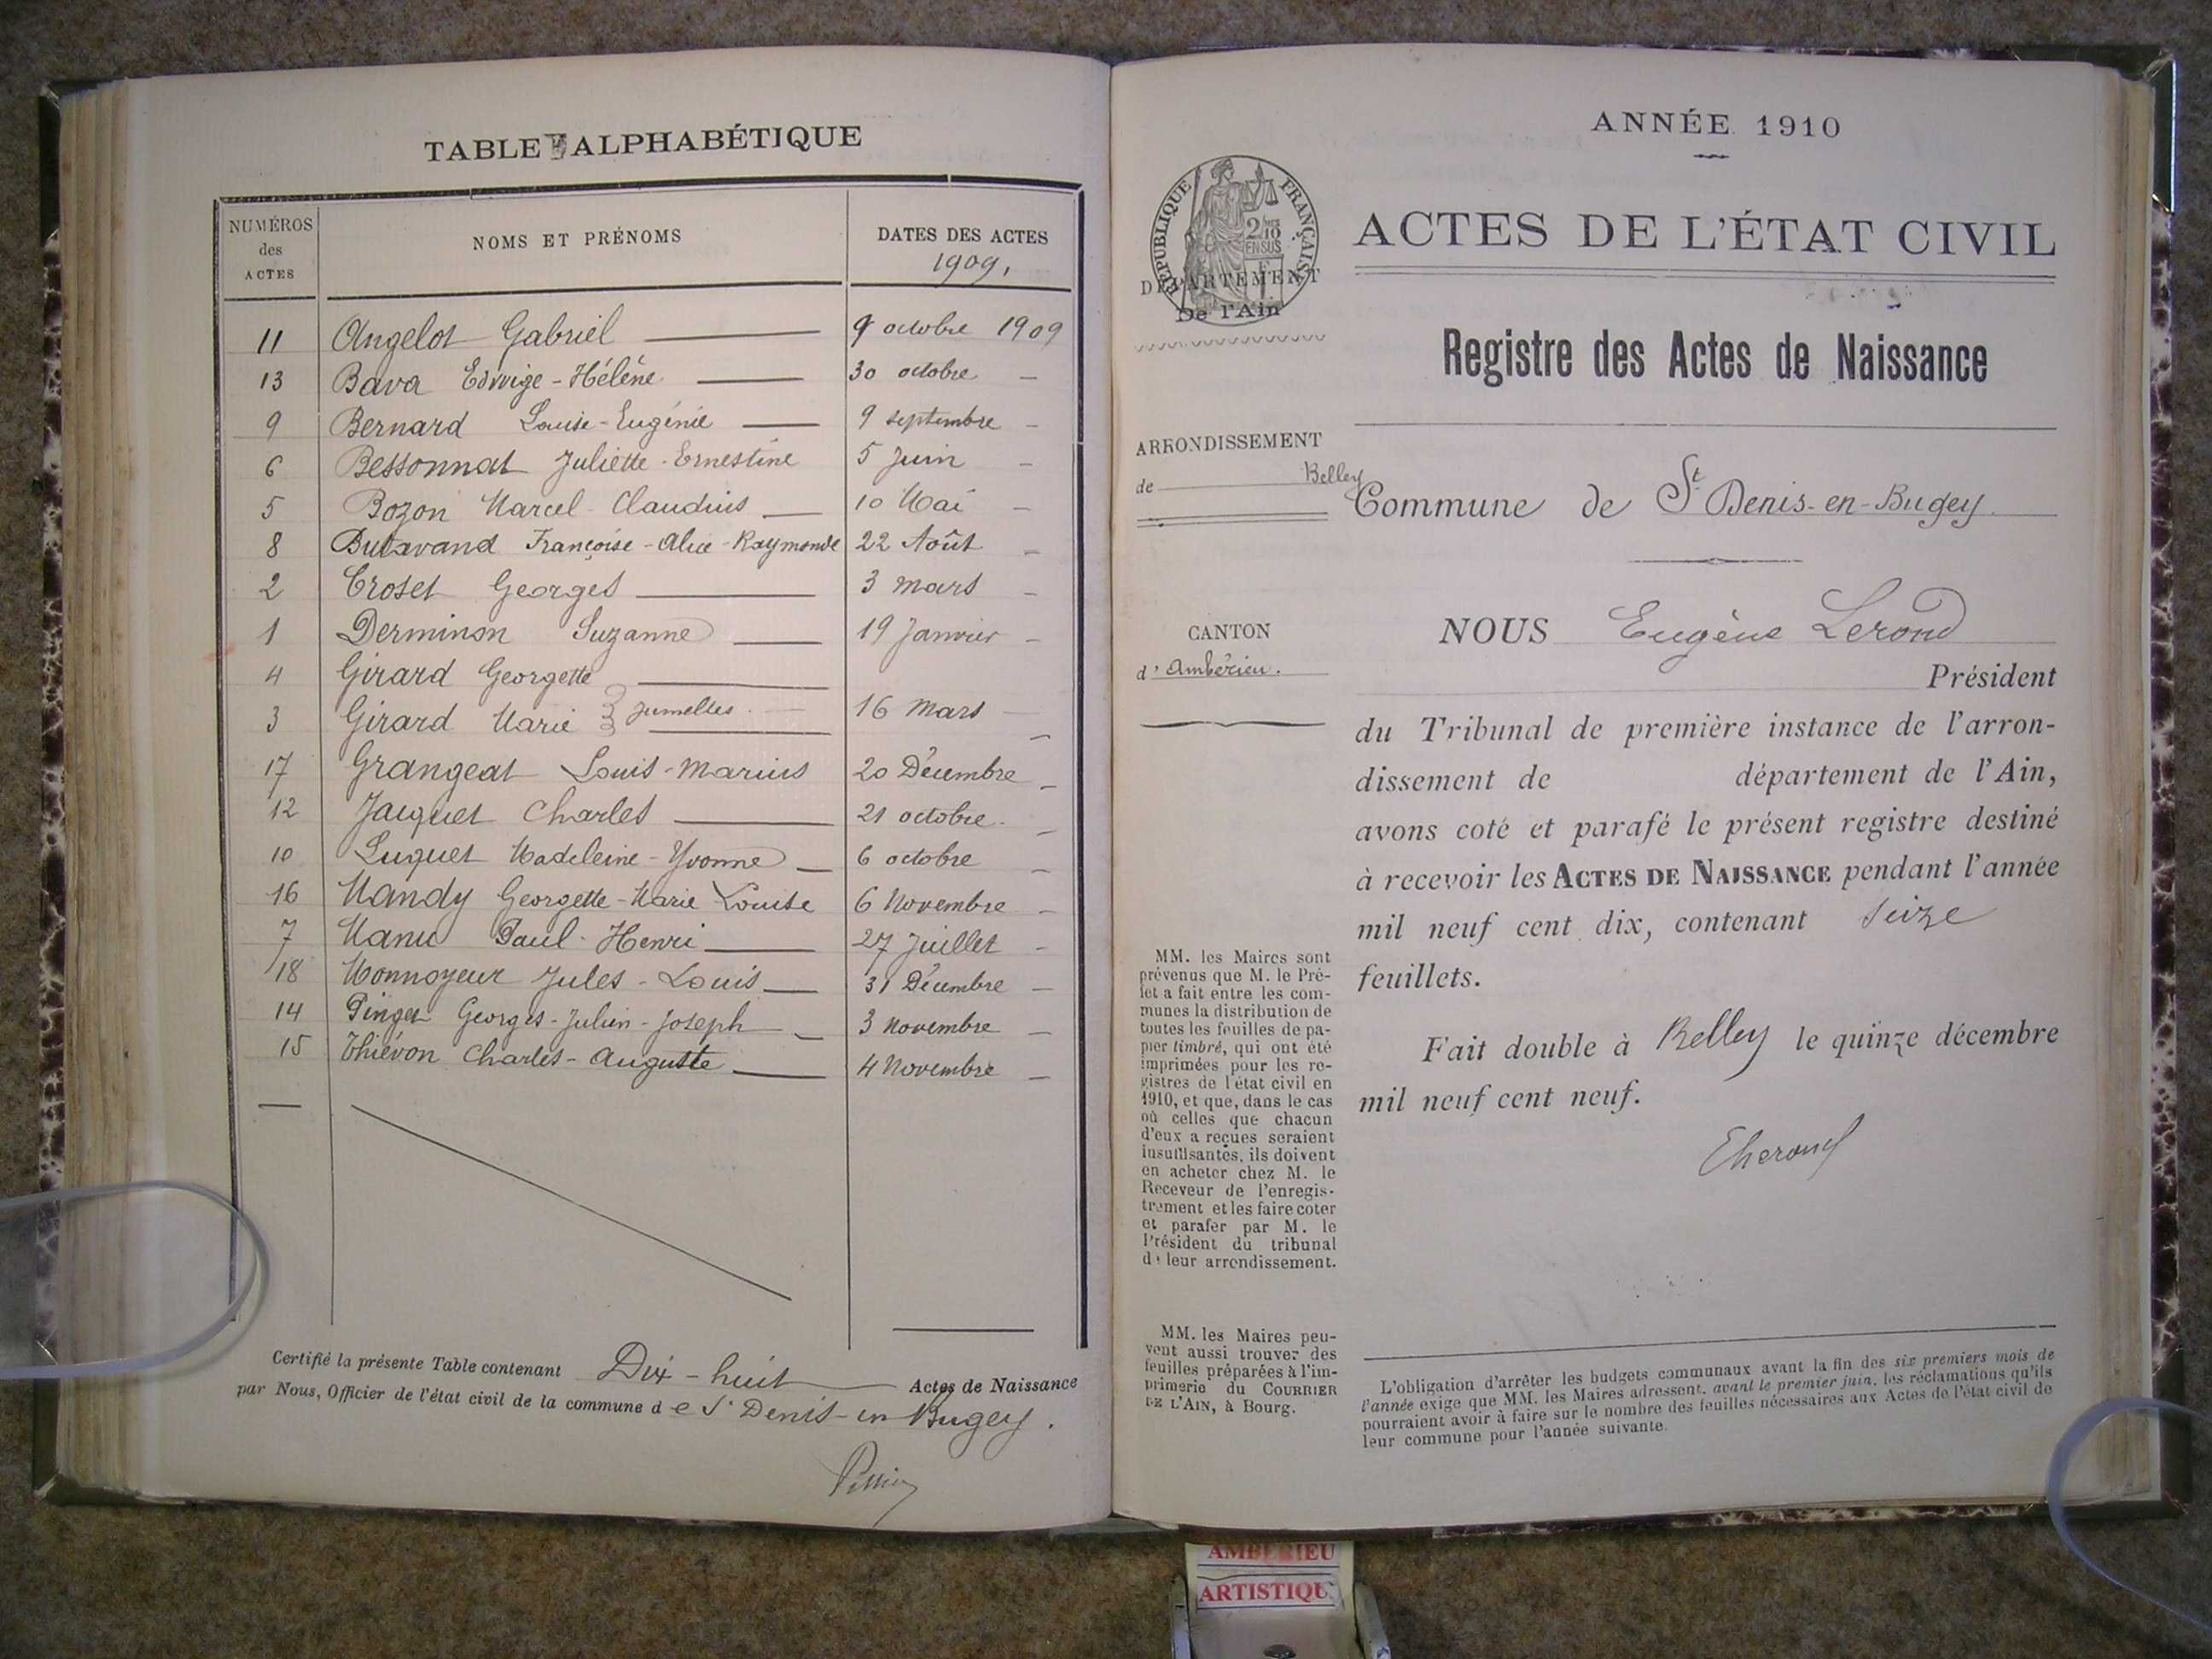 TABLE ALPHABÉTIQUE
NUMÉROS des ACTES
NOMS ET PRÉNOMS
DATES DES ACTES
1909,
11 Angelot Gabriel 9 octobre 1909
13 Bava Edwige-Hélène 30 octobre —
9 Bernard Louise-Eugénie 9 septembre —
6 Bessonnat Juliette-Ernestine 5 Juin —
5 Bozon Marcel-Claudius 10 Mai —
8 Butavand Françoise-Alice-Raymonde 22 Août —
2 Croset Georges 3 mars —
1 Derminon Suzanne 19 Janvier —
4 Girard Georgette
3 Girard Marie } jumelles 16 Mars —
17 Grangeat Louis-Marius 20 Décembre —
12 Jacquet Charles 21 octobre —
10 Luquet Madeleine-Yvonne 6 octobre —
16 Mandy Georgette-Marie Louise 6 Novembre —
7 Manu Paul-Henri 27 Juillet —
18 Monnoyeur Jules-Louis 31 Décembre —
14 Pinget Georges-Julien-Joseph 3 novembre —
15 Thiévon Charles-Auguste 4 Novembre —
Certifié la présente Table contenant Dix-huit Actes de Naissance
par Nous, Officier de l'état civil de la commune de St Denis-en Bugey.
ANNÉE 1910
RÉPUBLIQUE FRANÇAISE
2/10 EN SUS
DÉPARTEMENT
De l'Ain
ACTES DE L'ÉTAT CIVIL
Registre des Actes de Naissance
ARRONDISSEMENT
de Belley
Commune de St Denis-en-Bugey.
CANTON
d'Ambérieu.
NOUS Eugène Lerond
Président
du Tribunal de première instance de l'arron-
dissement de département de l'Ain,
avons coté et parafé le présent registre destiné
à recevoir les ACTES DE NAISSANCE pendant l'année
mil neuf cent dix, contenant Seize
feuillets.
Fait double à Belley le quinze décembre
mil neuf cent neuf.
MM. les Maires sont
prévenus que M. le Pré-
fet a fait entre les com-
munes la distribution de
toutes les feuilles de pa-
pier timbré, qui ont été
imprimées pour les re-
gistres de l'état civil en
1910, et que, dans le cas
où celles que chacun
d'eux a reçues seraient
insuffisantes, ils doivent
en acheter chez M. le
Receveur de l'enregis-
trement et les faire coter
et parafer par M. le
Président du tribunal
de leur arrondissement.
MM. les Maires peu-
vent aussi trouver des
feuilles préparées à l'im-
primerie du COURRIER
DE L'AIN, à Bourg.
L'obligation d'arrêter les budgets communaux avant la fin des six premiers mois de
l'année exige que MM. les Maires adressent, avant le premier juin, les réclamations qu'ils
pourraient avoir à faire sur le nombre des feuilles nécessaires aux Actes de l'état civil de
leur commune pour l'année suivante.
AMBERIEU
ARTISTIQU